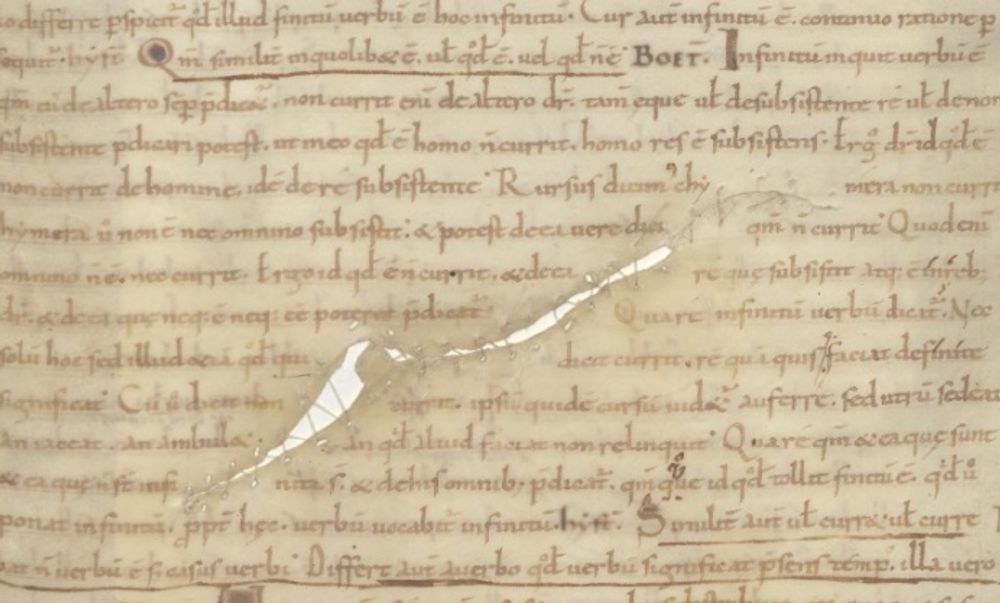 differre pspicit qd illud finitū uerbū ē hoc infinitū. Cur aut infinitū ē. continuo ratione p
Qm̄ similit inquolib& ē. ul qd ē. uel qd nē BOET. Infinitū inquit uerbū ē
qm cū de altero sēp p̄dicat. non currit enī de altero dr̄. tam eque ul de subsistente rē ul de non
subsistente p̄dicari potest. ut in eo qd ē homo n̄ currit. homo res ē subsistens. Ergo dr̄ id qd ē
non currit de homine. idē de re subsistente. Rursus dum chy mera non curr
hymera ū non ē nec omnino subsistit. & potest de ea uere dici qm̄ n̄ currit. Quod enī
omnino n̄ ē. nec currit. Ergo id qd ē n̄ currit. & de ea re quę subsistit atq; ē
dr̄. & de ea quę neq; ē neq; eē poterit p̄dicat Quare infinitū uerbū dicit. Nec
solū hoc sed illud &iā qd qui dicit currit. rē quā quis faciat definite
significat. Cū ū dicit non currit. ipsū quidē cursū uid&ur auferre. sed utrū sedeat
an iaceat. an ambul&. an qd aliud faciat non relinquit. Quare qm & ea que sunt
& ea que n̄ st̄ infi nita s̄. & de his omnib; p̄dicat. qmq; id qd tollit finitū ē. qd ū
ponat infinitū. ppt hęc. uerbū uocabit infinitū. Similit aut ul curr& ul curre
n̄ uerbū ē s; casus uerbi Differt aut a uerbo qd uerbū significat p̄sens temp. illa uero